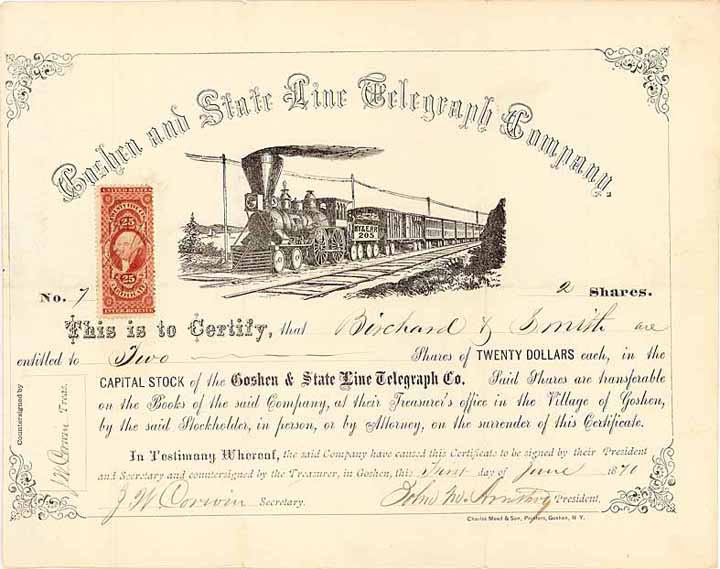 Goshen and State Line Telegraph Company,
UNITED STATES
25
25
INTER. REVENUE
N.Y.& E.R.R
205
No. 7
2 Shares.
This is to Certify, that Birchard & Smith are
entitled to Two Shares of TWENTY DOLLARS each, in the
CAPITAL STOCK of the Goshen & State Line Telegraph Co. Said Shares are transferable
on the Books of the said Company, at their Treasurer's office in the Village of Goshen,
by the said Stockholder, in person, or by Attorney, on the surrender of this Certificate.
In Testimony Whereof, the said Company have caused this Certificate to be signed by their President
and Secretary and countersigned by the Treasurer, in Goshen, this First day of June 1870
J W Corwin Secretary.
John M. President.
Countersigned by
J W Corwin Treas.
Charles Mead & Son, Printers, Goshen, N. Y.